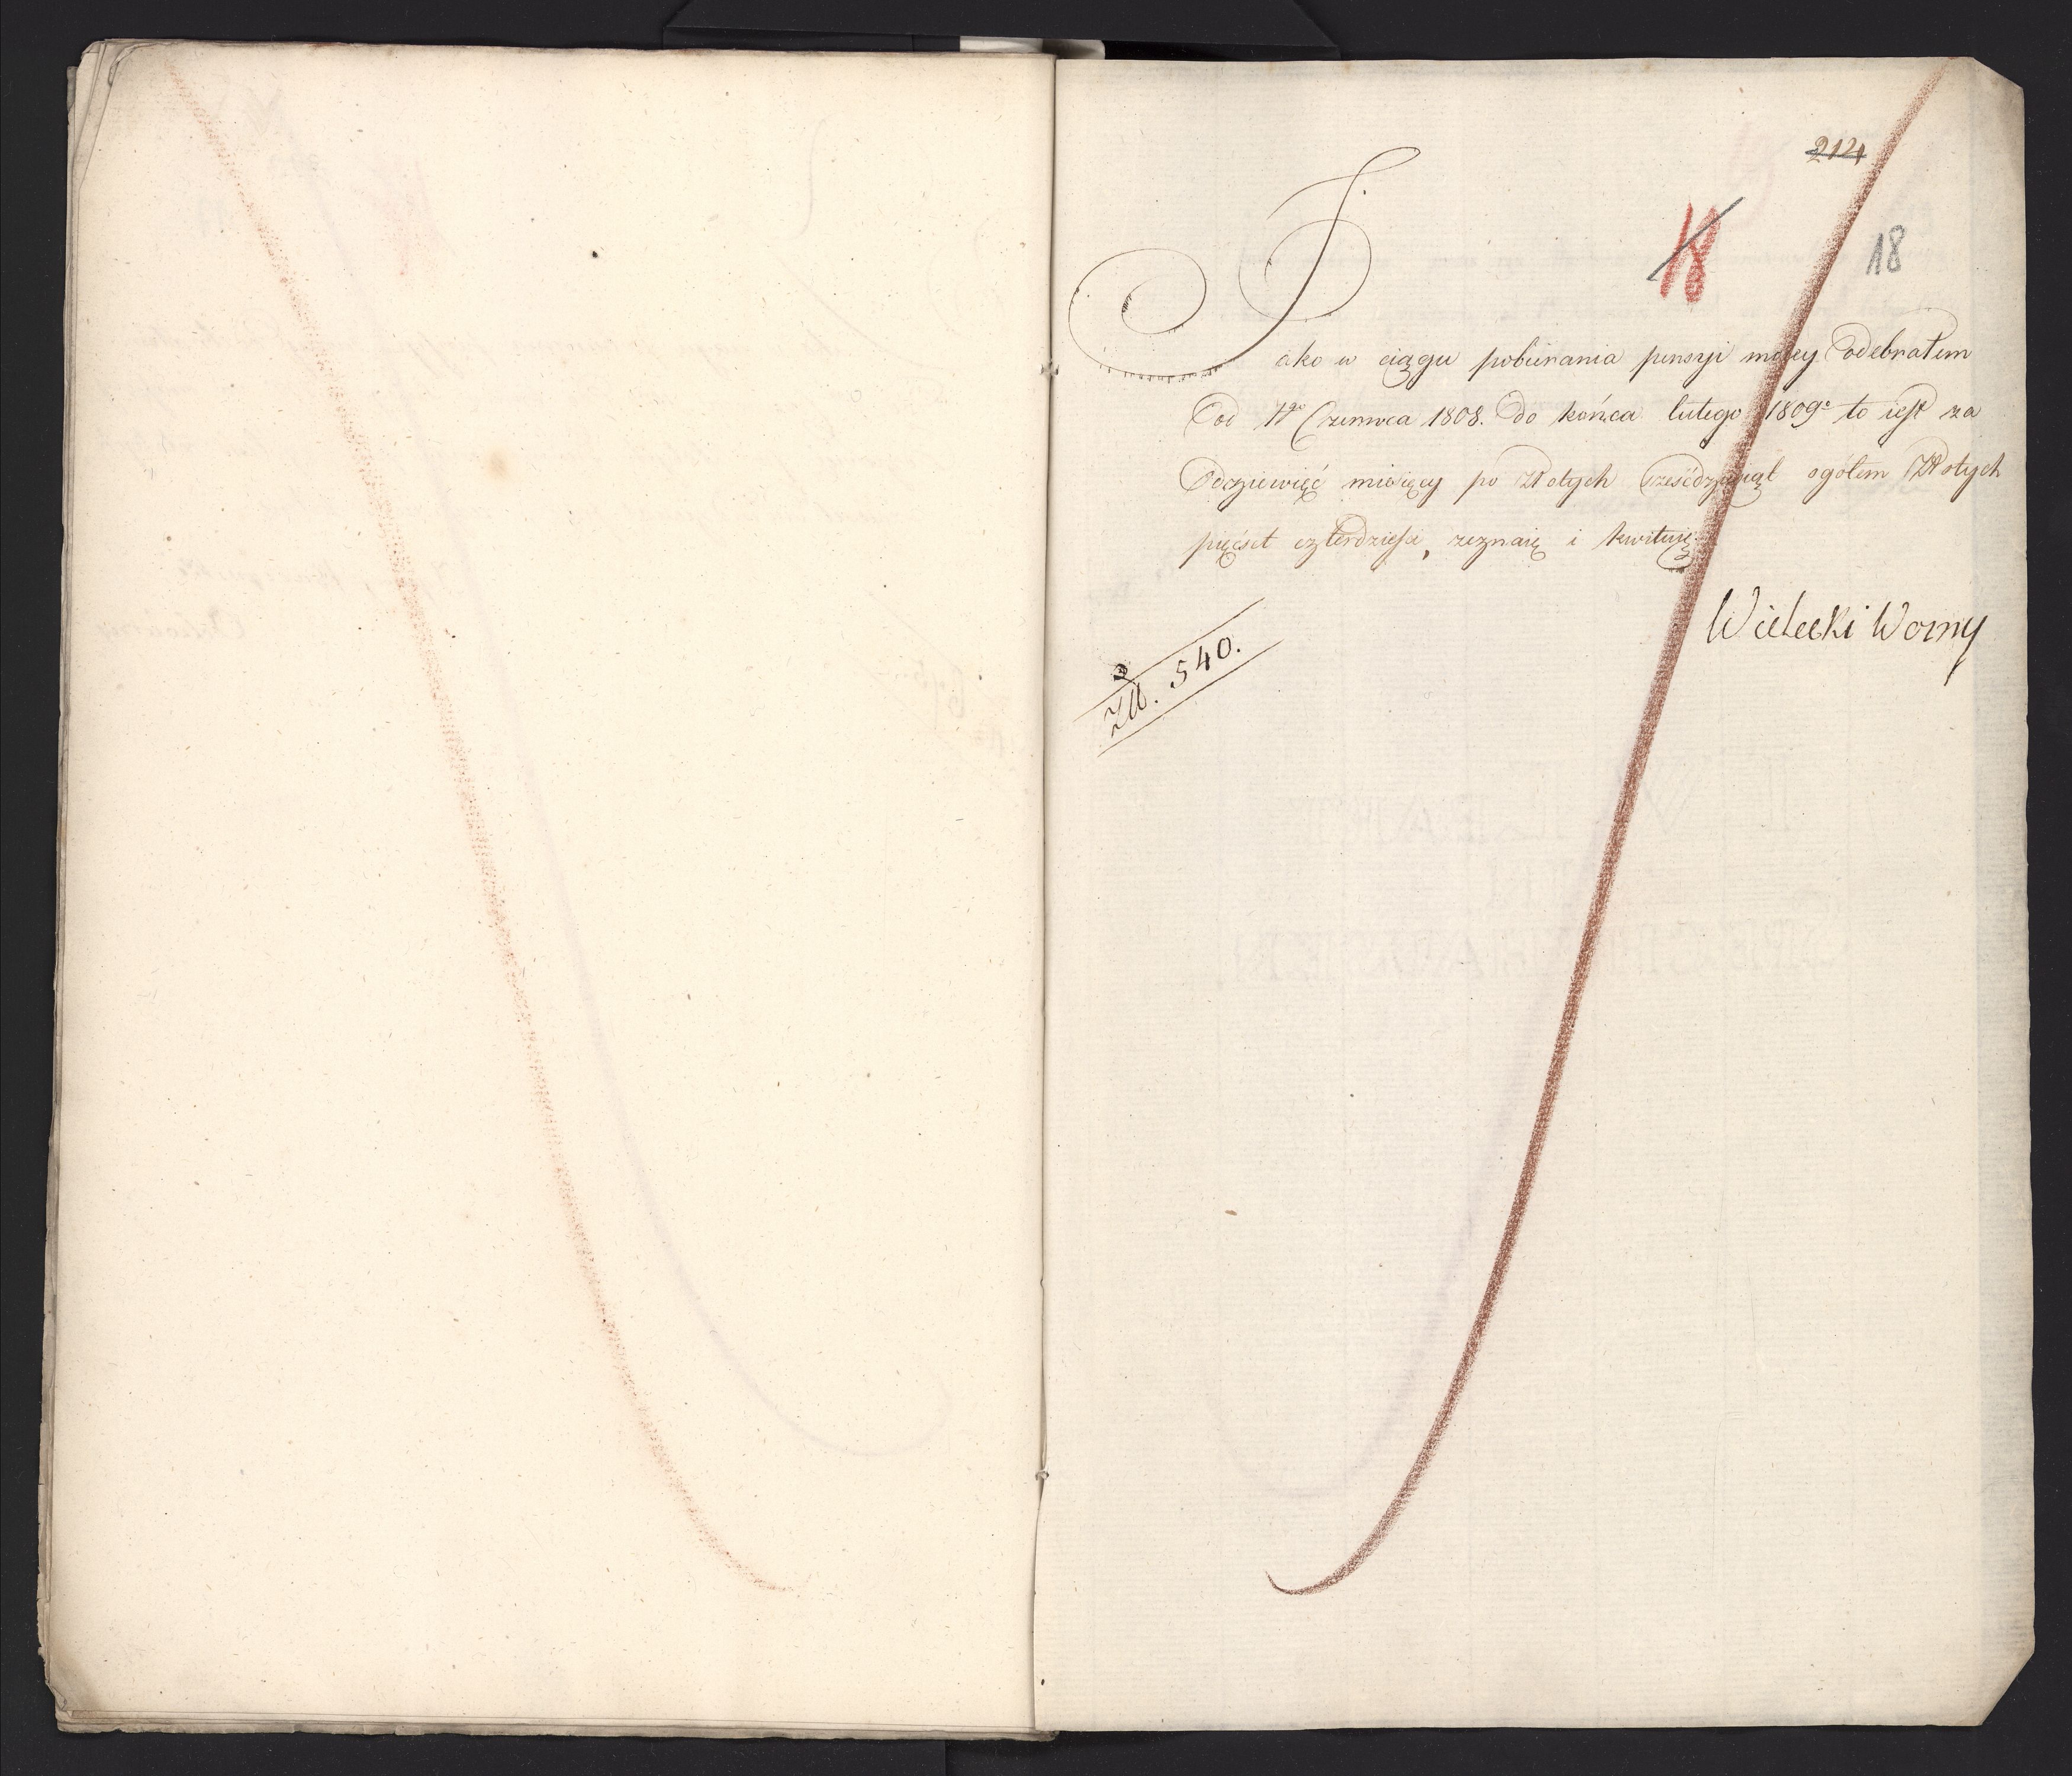 214
18
18
Jako w ciągu pobierania pensyi moiey odebrałem
od 1go Czerwca 1808. do końca lutego 1809o to iest za
dziewięć miesięcy po złotych sześćdziesiąt ogółem Złotych
pięćset czterdzieści, zeznaię i kwituię
Wielecki Wozny
Zł. 540.